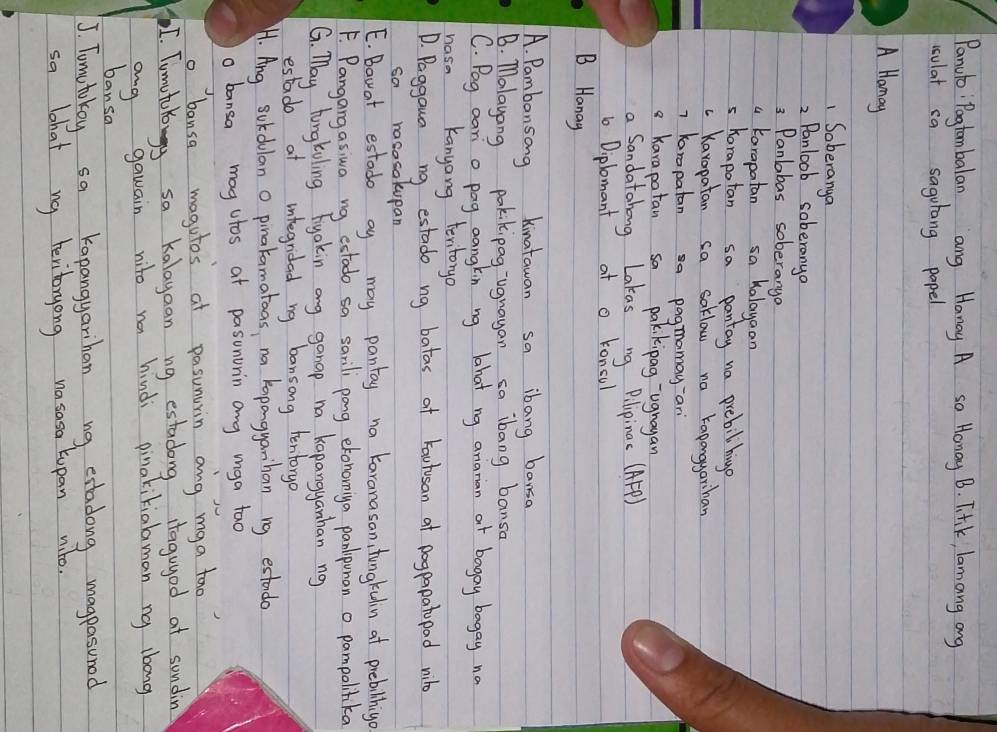 Panuto: Pagtambalan ang Hanay A sa Hanay B. Titik lamang ang
isulat sa sagutang papel
A Hanay
1 Soberanya
2 Panloob soberanya
3 Panlabas soberanya
4 karapatan sa kalayaan
5 karapatan sa pantay na prebilihiyo
6 karapatan sa saklaw na kapangyarihan
7 karapatan sa pagmamay-ari
8 karapatan sa pakikipag-ugnayan
a Sandatahang Lakas ng Pilipinas (AFP)
b Diplomant at o konsul
B Hanay
A. Pambansang kinatawan sa ibang bansa
B. Malayang pakikipag-ugnayan sa ibang bansa
C. Pag aari o pag aangkin ng lahat ng ararian at bagay bagay na
nasa kanyang teritoryo
D. Paggawa ng estado ng batas at kautusan at pagpapatupad nito
sa nasasakupan
E. Bawat estado ay may pantay na karanasan, tungkulin at prebilihiyo.
F. Pangangasiwa ng estado sa sarili pang ekonomiya panlipunan o pampalitika
G. May tungkuling tiyakin ang ganap na kapangyarihan ng
estado at integridad ng bansang teritoryo
H. Ang sukdulan o pinakamataas na kapangyarihan ng estado
o bansa mag utos at pasunurin ang mga tao
o bansa magutos at pasunurin ang mga tao
I. Tumutukoy sa kalayaan ng estadong itaguyod at sundin
ang gawain nito na hindi pinakikialaman ng ibang
bansa
J. Tumutukoy sa kapangyarihan ng estadong magpasunod
sa lahat ng teritoryong nasasakupan nito.